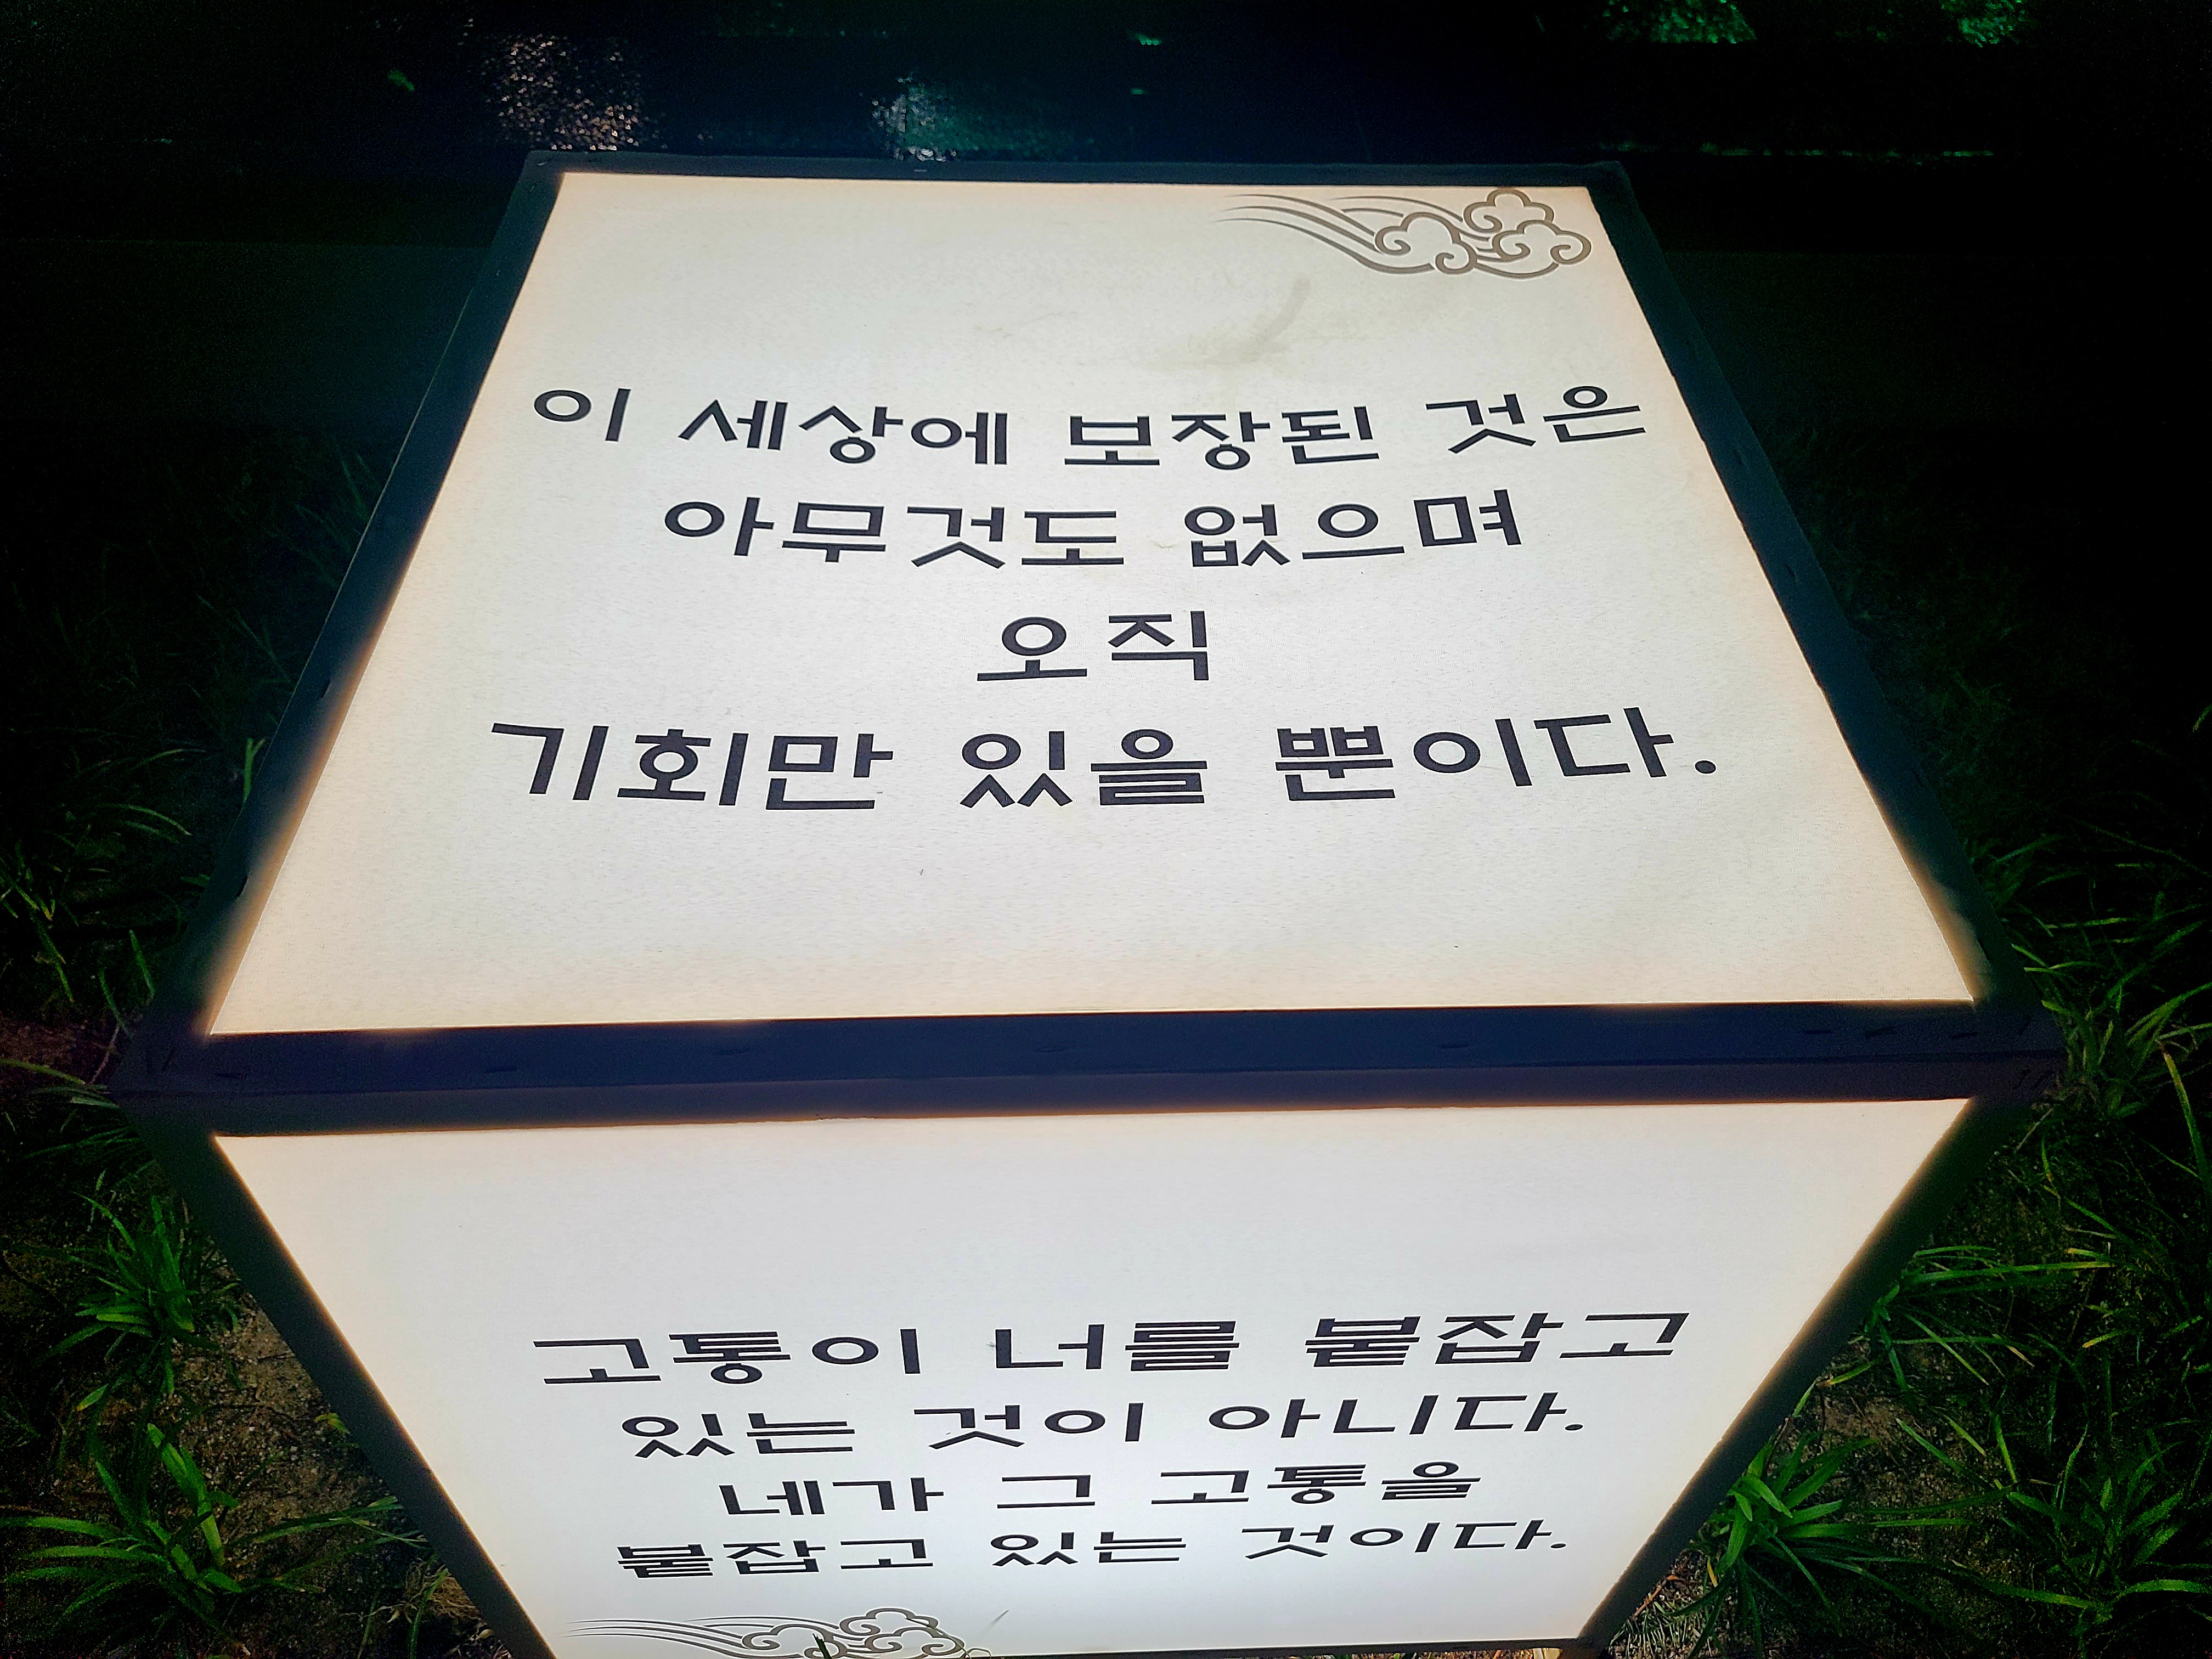 이 세상에 보장된 것은
아무것도 없으며
오직
기회만 있을 뿐이다.
고통이 너를 붙잡고
있는 것이 아니다.
네가 그 고통을
붙잡고 있는 것이다.